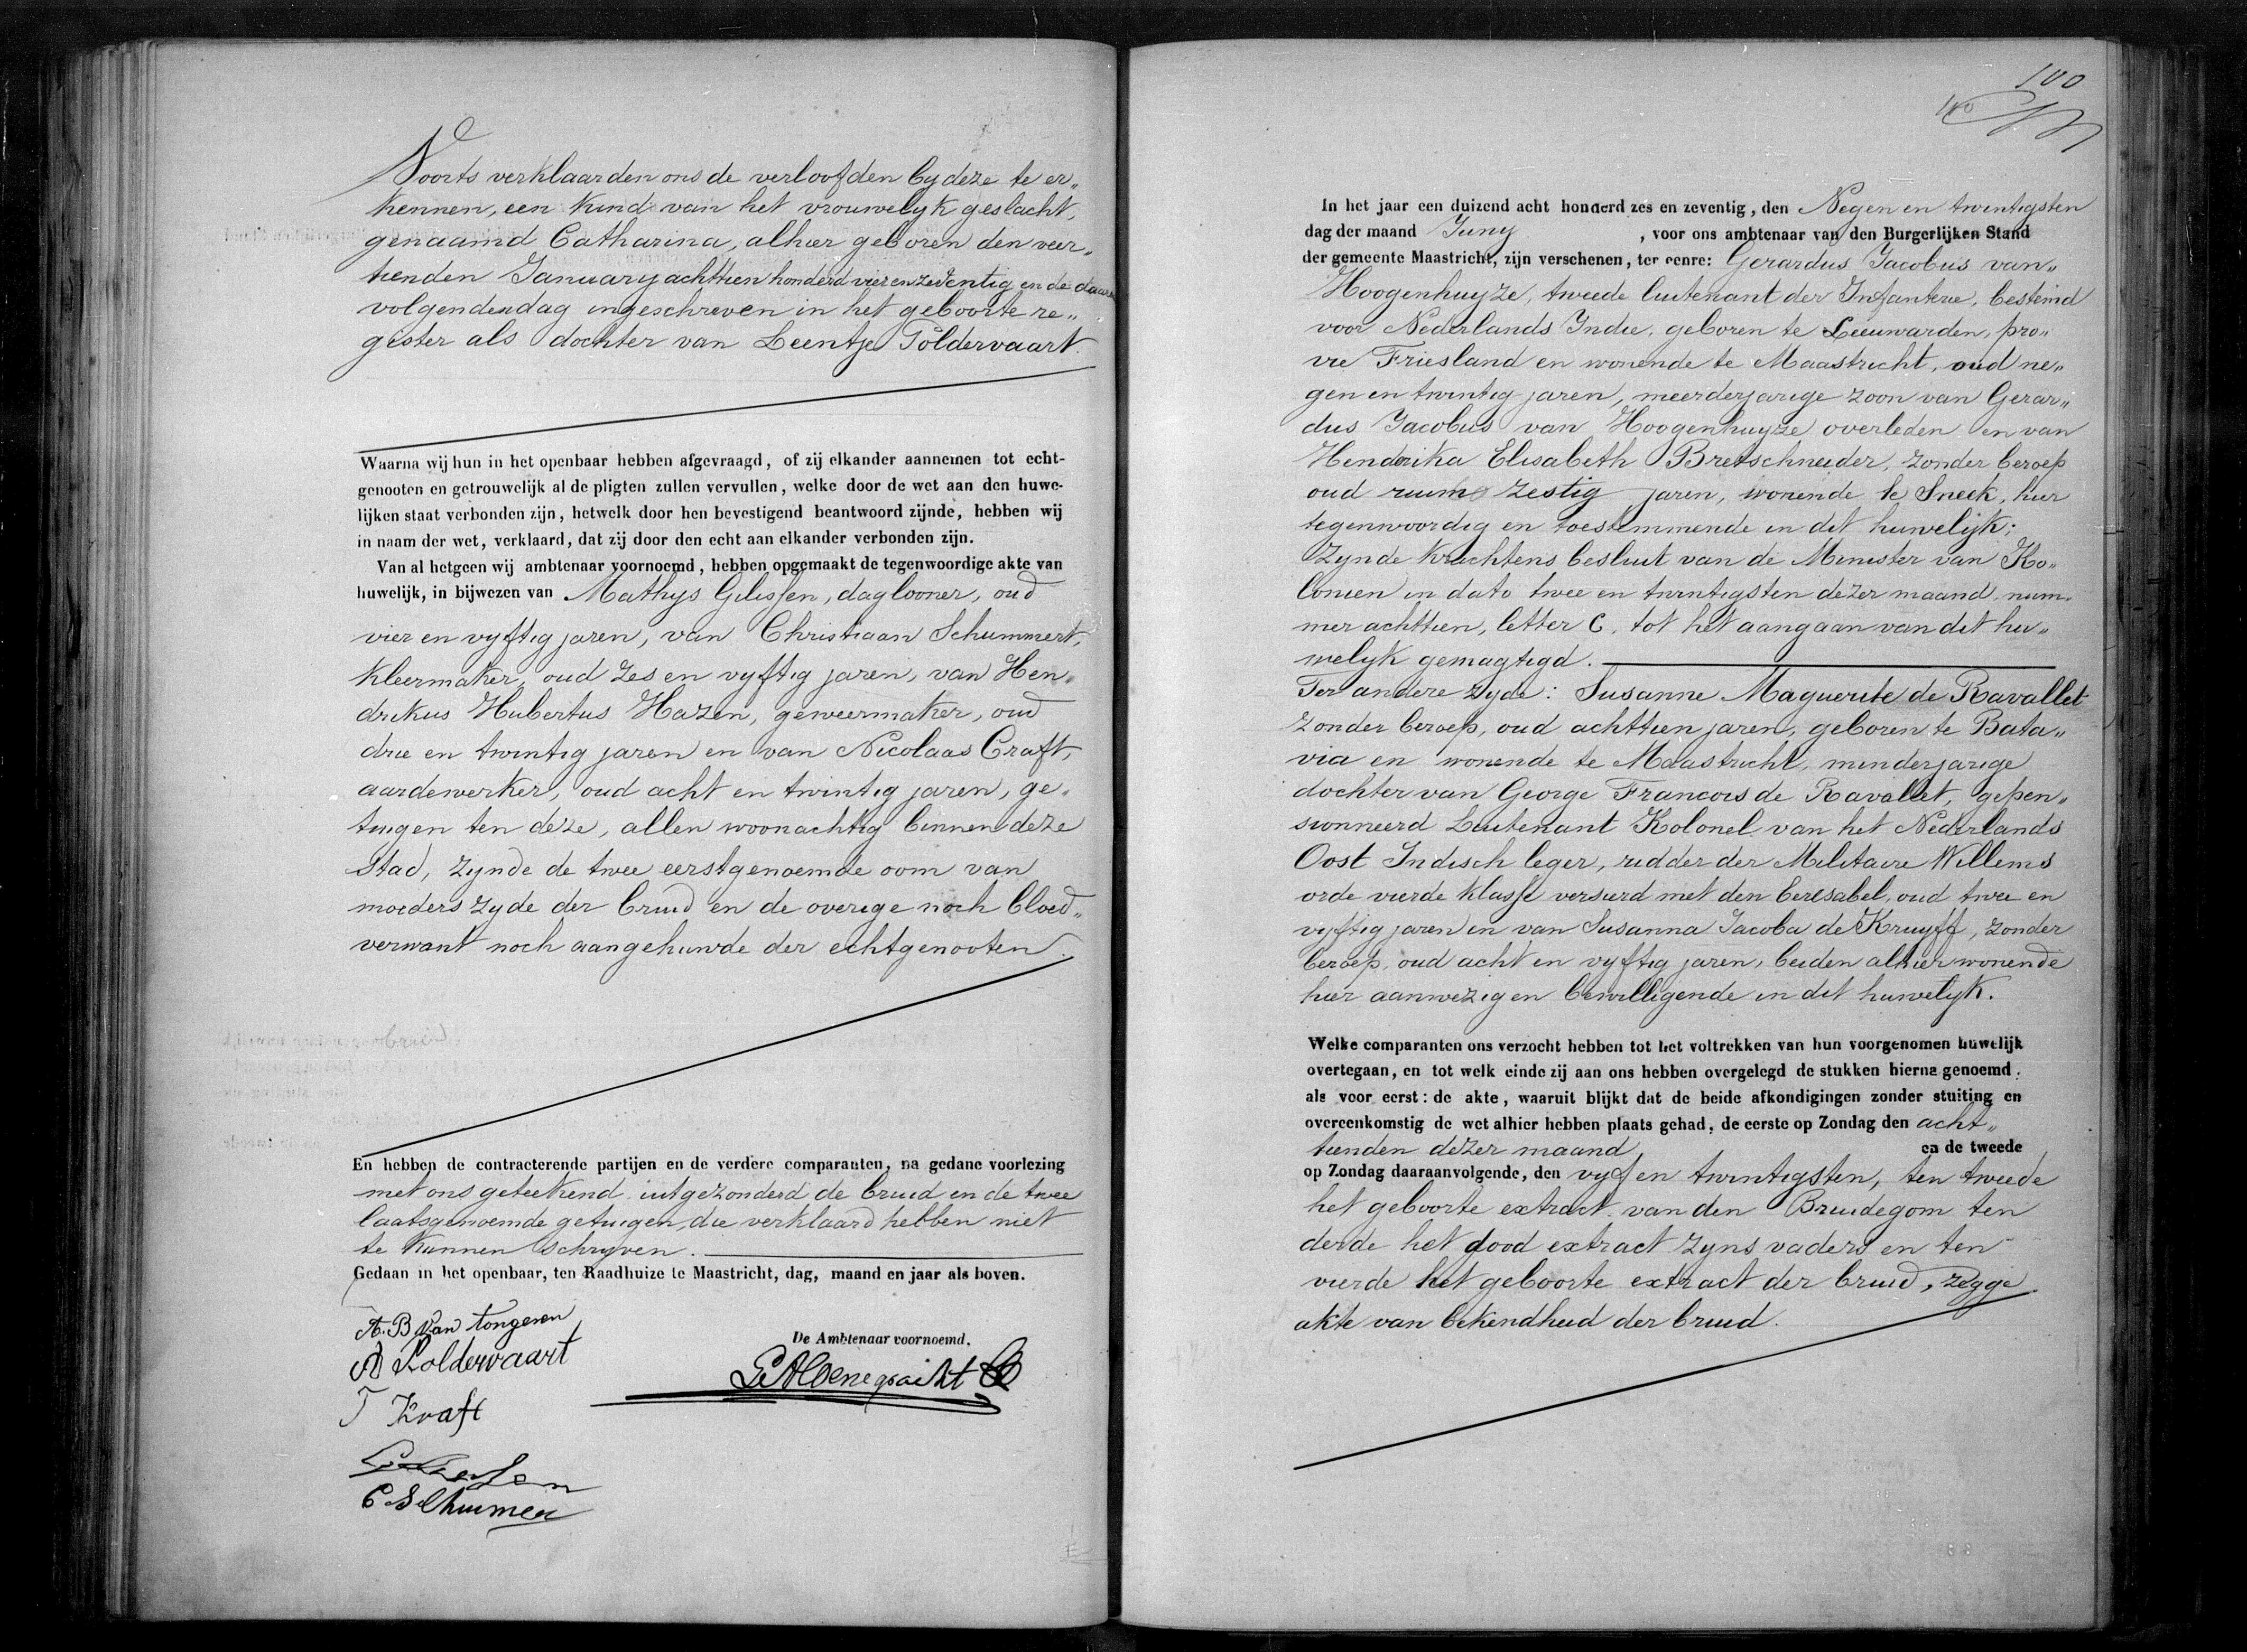 Voorts verklaarden ons de verloofden by deze te er„
kennen, een kind van het vrouwelyk geslacht,
genaamd Catharina, alhier geboren den veer„
tienden January achttien honderd vier en zeventig en de daar
volgenden dag ingeschreven in het geboorte re„
gister als dochter van Leentje Poldervaart.
Waarna wij hun in het openbaar hebben afgevraagd, of zij elkander aannemen tot echt-
genooten en getrouwelijk al de pligten zullen vervullen, welke door de wet aan den huwe-
lijken staat verbonden zijn, hetwelk door hen bevestigend beantwoord zijnde, hebben wij
in naam der wet, verklaard, dat zij door den echt aan elkander verbonden zijn.
Van al hetgeen wij ambtenaar voornoemd, hebben opgemaakt de tegenwoordige akte van
huwelijk, in bijwezen van Mathys Gilissen, daglooner, oud
vier en vyftig jaren, van Christiaan Schummert,
kleermaker, oud zes en vyftig jaren, van Hen„
drikus Hubertus Hazen, geweermaker, oud
drie en twintig jaren en van Nicolaas Craft,
aardewerker, oud acht en twintig jaren, ge„
tuigen ten deze, allen woonachtig binnen deze
stad, zynde de twee eerstgenoemde oom van
moeders zyde der bruid en de overige noch bloed„
verwant noch aangehuwde der echtgenooten.
En hebben de contracterende partijen en de verdere comparanten, na gedane voorlezing
met ons geteekend uitgezonderd de bruid en de twee
laatsgenoemde getuigen, die verklaard hebben niet
te kunnen schryven.
Gedaan in het openbaar, ten Raadhuize te Maastricht, dag, maand en jaar als boven.
A. B van tongeren
De Ambtenaar voornoemd.
Poldervaart
Kraft
100
100
In het jaar een duizend acht honderd zes en zeventig, den Negen en twintigsten
dag der maand Juny , voor ons ambtenaar van den Burgerlijken Stand
der gemeente Maastricht, zijn verschenen, ter eenre: Gerardus Jacobus van„
Hoogenhuyze, tweede luitenant der Infanterie, bestemd
voor Nederlands Indie, geboren te Leeuwarden, pro„
vie Friesland en wonende te Maastricht, oud ne„
gen en twintig jaren, meerderjarige zoon van Gerar„
dus Jacobus van Hoogenhuyze overleden en van
Hendrika Elisabeth Bretschneider, zonder beroep
oud ruim zestig jaren, wonende te Sneek, hier
tegenwoordig en toestemmende in dit huwelijk;
zynde krachtens besluit van de Minister van Ko„
lonien in dato twee en twintigsten dezer maand num„
mer achttien, letter C, tot het aangaan van dit hu„
welyk gemagtigd.
Ter andere zyde: Susanne Maguerite de Ravallet
zonder beroep, oud achttien jaren, geboren te Bata„
via en wonende te Maastricht, minderjarige
dochter van George Francois de Ravallet, gepen„
sionneerd Luitenant Kolonel van het Nederlands
Oost Indisch leger, ridder der Militaire Willems
orde vierde klasse versierd met den eeresabel, oud twee en
vyftig jaren en van Susanna Jacoba de Kruyff, zonder
beroep, oud acht en vyftig jaren, beiden alhier wonende
hier aanwezig en bewilligende in dit huwelyk.
Welke comparanten ons verzocht hebben tot het voltrekken van hun voorgenomen huwelijk
overtegaan, en tot welk einde zij aan ons hebben overgelegd de stukken hierna genoemd:
als voor eerst: de akte, waaruit blijkt dat de beide afkondigingen zonder stuiting en
overeenkomstig de wet alhier hebben plaats gehad, de eerste op Zondag den acht„
tienden dezer maand en de tweede
op Zondag daaraanvolgende, den vyf en twintigsten, ten tweede
het geboorte extract van den Bruidegom ten
derde het dood extract zyns vaders en ten
vierde het geboorte extract der bruid, zegge
akte van bekendheid der bruid.